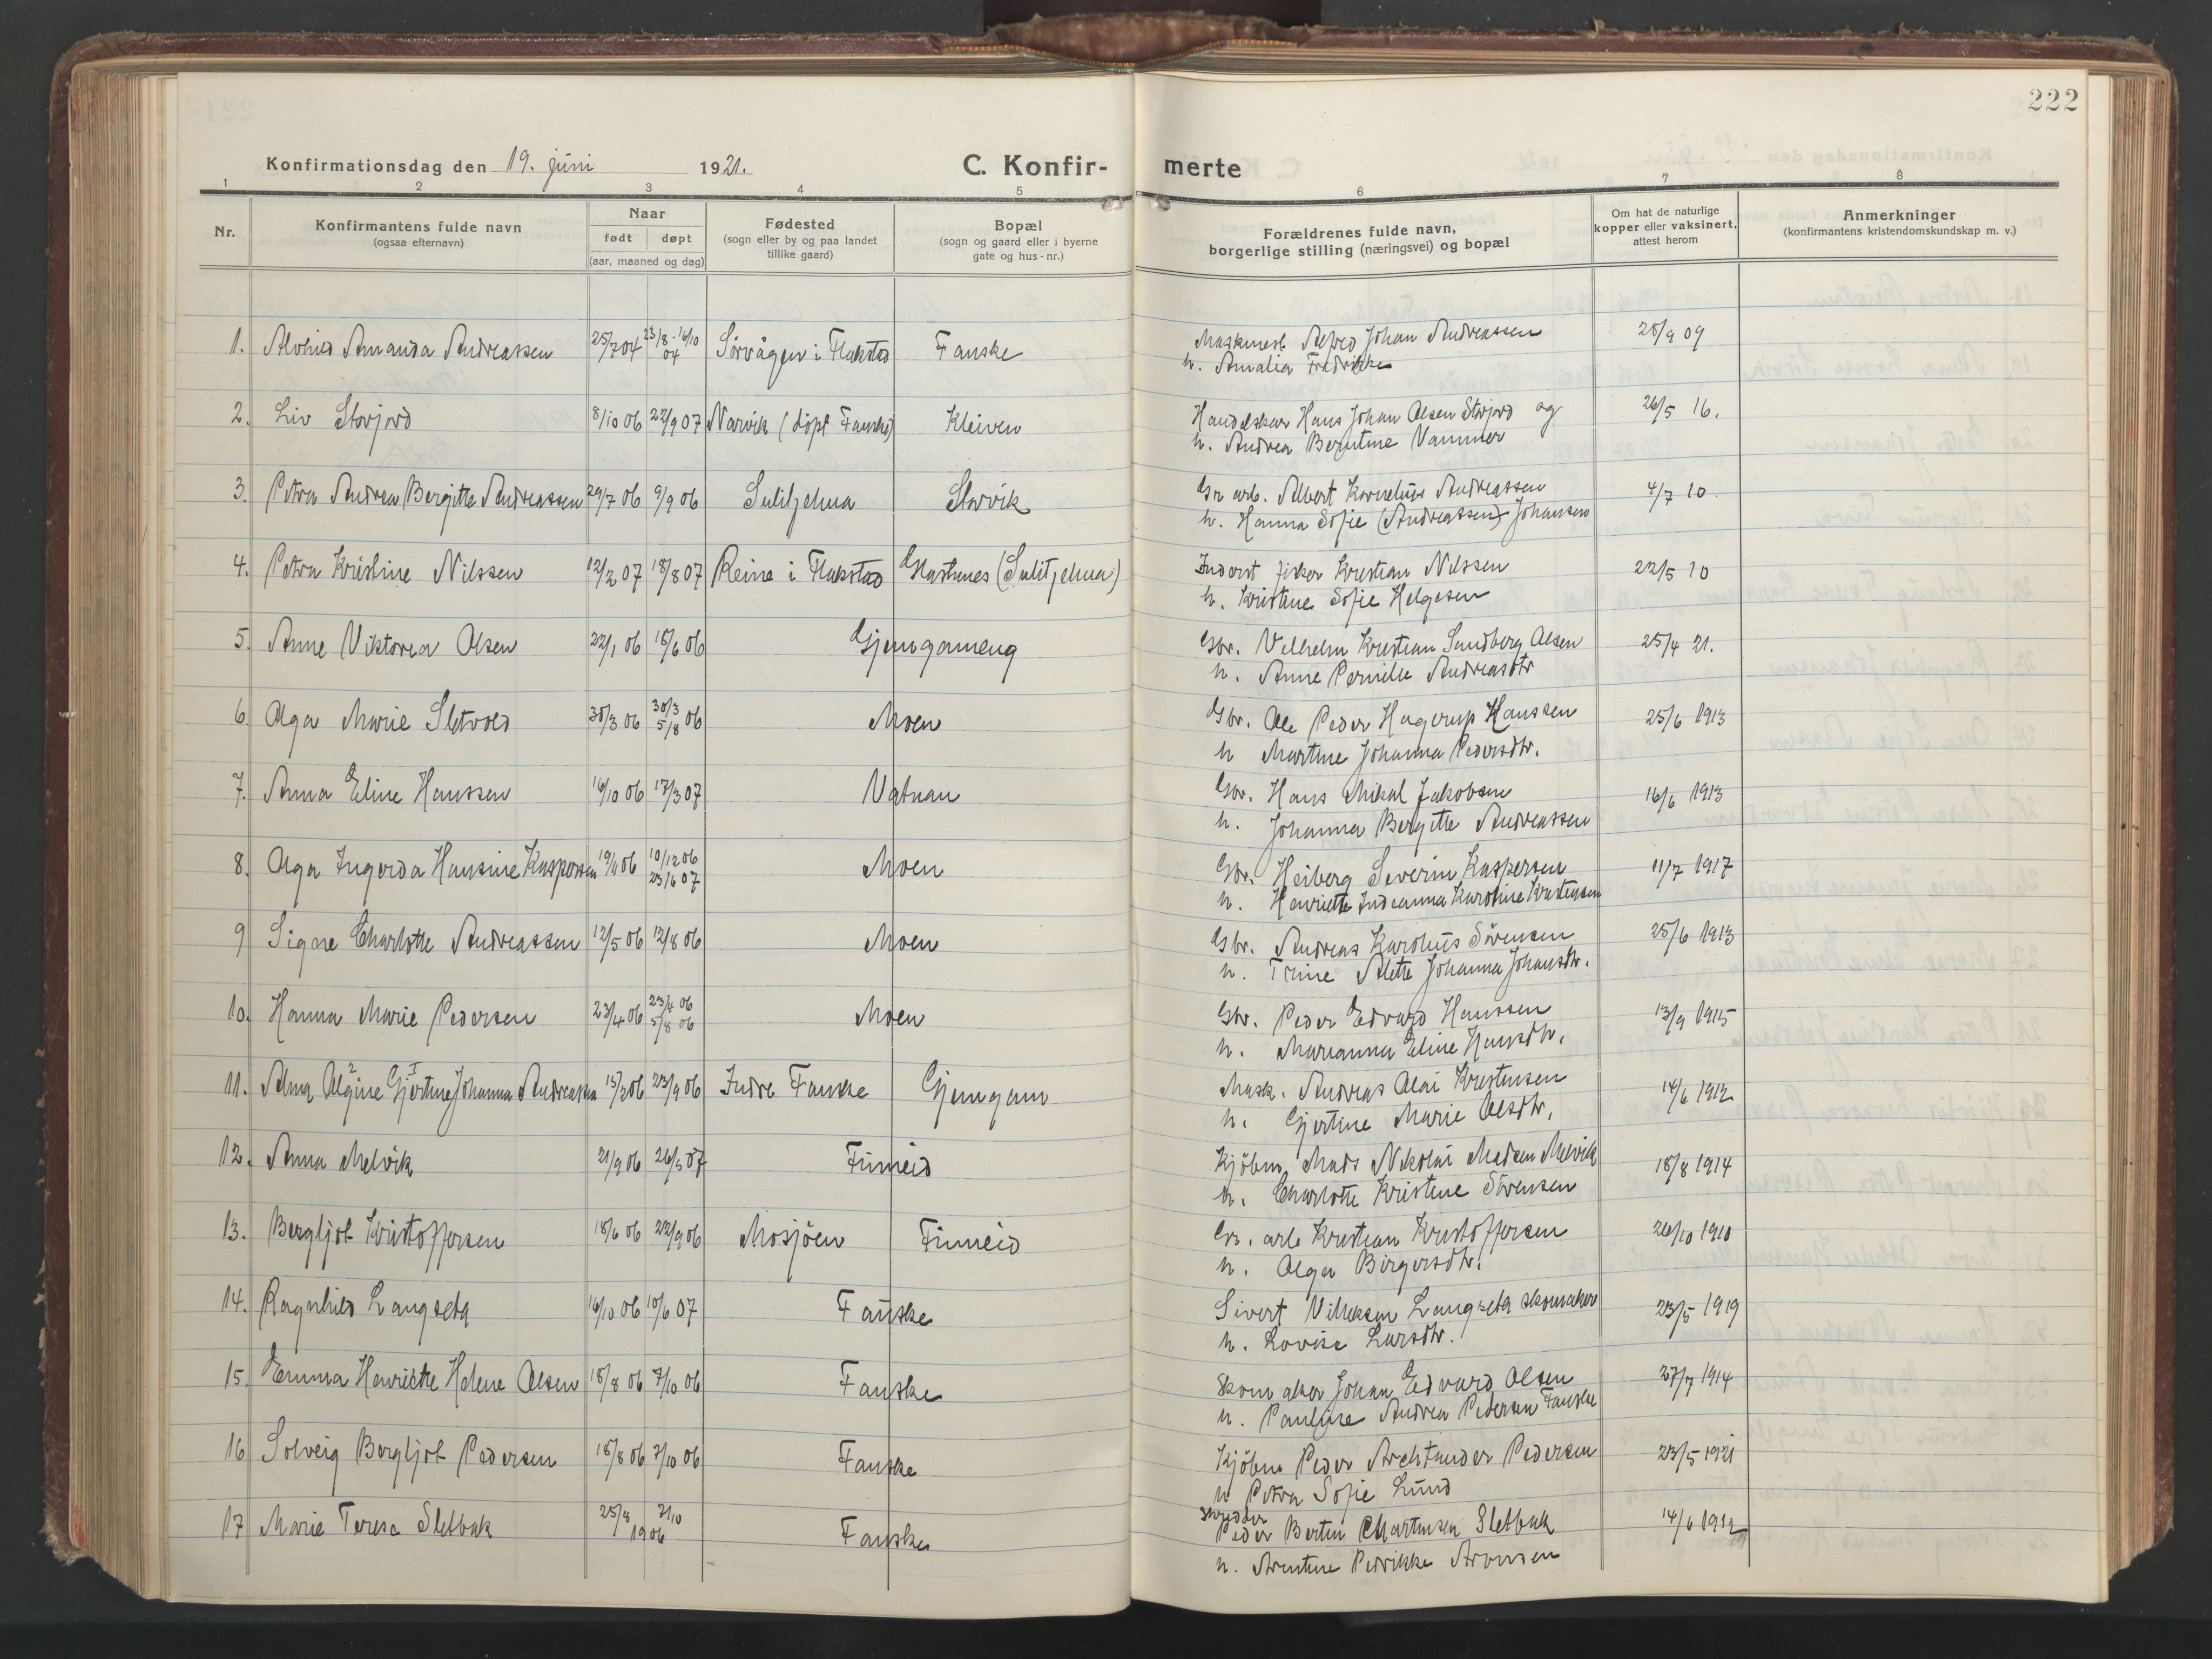 222
Konfirmationsdag den 19. juni 1921.
C. Konfir- merte
1 2 3 4 5 6 7 8
Nr.
Konfirmantens fulde navn
(ogsaa efternavn)
Naar
født døpt
(aar, maaned og dag)
Fødested
(sogn eller by og paa landet
tillike gaard)
Bopæl
(sogn og gaard eller i byerne
gate og hus-nr.)
Forældrenes fulde navn,
borgerlige stilling (næringsvei) og bopæl
Om hat de naturlige
kopper eller vaksinert,
attest herom
Anmerkninger
(konfirmantens kristendomskundskap m. v.)
1. Alvhild Amanda Andreassen 25/7 04 23/8-16/10 04 Sörvågen i Flakstad Fauske Maskinest Alfred Johan Andreassen 28/9 09
h. Amalia Fredrikke
2. Liv Storjord 8/10 06 22/9 07 Narvik (döpt Fauske) Kleiven Handelskar Hans Johan Olsen Storjord og 26/5 16.
h. Andrea Berntine Vammer
3. Petra Andrea Bergitte Andreassen 29/7 06 9/9 06 Sulitjelma Storvik Gr. arb. Albert Kornelius Andreassen 4/7 10
h. Hanna Sofie (Andreassen) Johansen
4. Petra Kristine Nilssen 12/2 07 18/8 07 Reine i Flakstad Glastunes (Sulitjelma) Inderst fisker Kristian Nilssen 22/5 10
h. Kristine Sofie Helgesen
5. Anne Viktoria Olsen 22/1 06 18/6 06 Gjemgameng Gbr. Vilhelm Kristian Sundberg Olsen 25/4 21.
h. Anne Pernille Andreasdtr
6. Olga Marie Sletvold 30/3 06 30/3 5/8 06 Moen Gbr. Ole Peder Hagerup Hanssen 25/6 1913
h Martine Johanna Pedersdtr.
7. Anna Eline Hanssen 16/10 06 17/3 07 Vatnan Gbr. Hans Mikal Jakobsen 16/6 1913
h. Johanna Bergitte Andreassen
8. Olga Ingerda Hansine Kaspersen 19/11 06 10/12 06 23/6 07 Moen Gbr. Heiberg Severin Kaspersen 11/7 1917
h. Henriette Indianna Karoline Kristensen
9 Signe Charlotte Andreassen 12/5 06 12/8 06 Moen Gbr. Andreas Karolius Sörensen 25/6 1913
h. Trine Alette Johanna Johansdtr.
10. Hanna Marie Pedersen 23/4 06 23/4 06 5/8 06 Moen Gbr. Peder Edvard Hanssen 13/9 1915
h. Marianna Eline Hansdtr.
11. Alma Olgine 2 Gjertine 1 Johanna Andreassen 15/2 06 23/9 06 Indre Fauske Gjemgam Mask. Andreas Olai Kristensen 14/6 1912
h. Gjertine Marie Olsdtr.
12. Anna Melvik 21/9 06 26/5 07 Finneid Kjöbm. Mads Nikolai Madsen Melvik 18/8 1914
h. Charlotte Kristine Sörensen
13. Bergljot Kristoffersen 18/6 06 22/9 06 Mosjöen Finneid Gr. arb Kristian Kristoffersen 26/10 1910
h. Olga Birgersdtr.
14. Ragnhild Langseth 16/10 06 10/6 07 Fauske Sivert Villeksen Langseth skomaker 23/5 1919
h. Lovise Larsdtr.
15. Emma Henriette Helene Olsen 18/8 06 7/10 06 Fauske Skomaker Johan Edvard Olsen 27/7 1914
h. Pauline Andrea Pedersen Fauske
16 Solveig Bergljot Pedersen 18/8 06 7/10 06 Fauske Kjöbm Peder Pedersen 23/5 1921
h Petra Sofie Lund
17 Marie Teresa Sletbak 25/8 7/10 1906 Fauske skredder Peder Bertin Martinsen Sletbak 14/6 1912
h. Arntine Pedrikke Aronsen